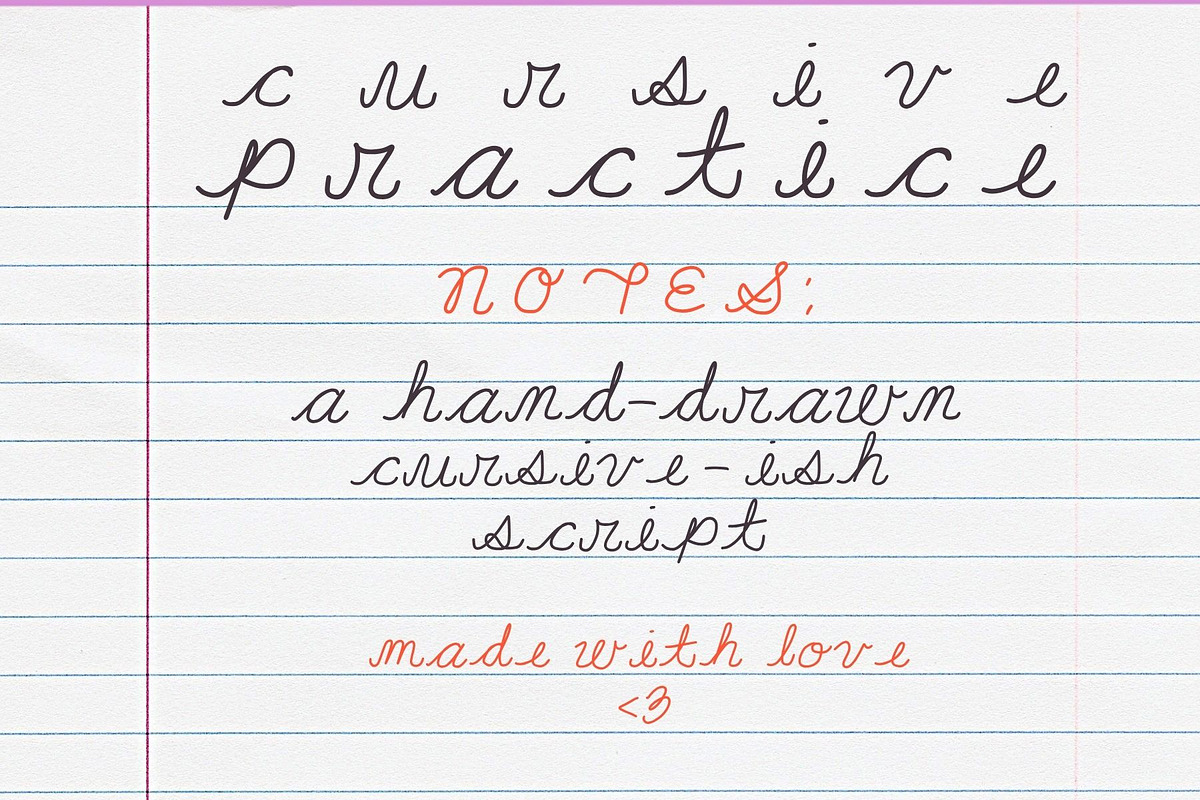 cursive
practice
NOTES:
a hand-drawn
cursive-ish
script
made with love
<3